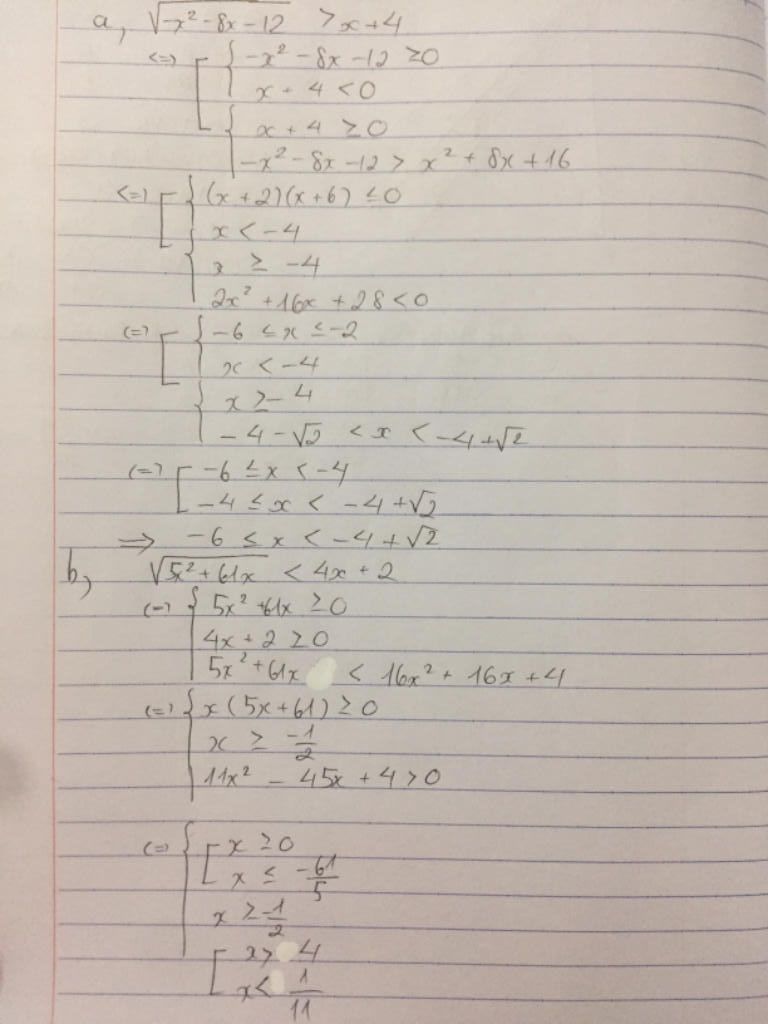 a, √(-x² - 8x - 12) > x + 4
<=> [ { -x² - 8x - 12 ≥ 0
x + 4 < 0
{ x + 4 ≥ 0
-x² - 8x - 12 > x² + 8x + 16
<=> [ { (x + 2)(x + 6) ≤ 0
x < -4
{ x ≥ -4
2x² + 16x + 28 < 0
<=> [ { -6 ≤ x ≤ -2
x < -4
{ x ≥ -4
-4 - √2 < x < -4 + √2
<=> [ -6 ≤ x < -4
-4 ≤ x < -4 + √2
=> -6 ≤ x < -4 + √2
b, √(5x² + 61x) < 4x + 2
<=> { 5x² + 61x ≥ 0
4x + 2 ≥ 0
5x² + 61x < 16x² + 16x + 4
<=> { x(5x + 61) ≥ 0
x ≥ -1/2
11x² - 45x + 4 > 0
<=> { [ x ≥ 0
x ≤ -61/5
x ≥ -1/2
[ x > 4
x < 1/11